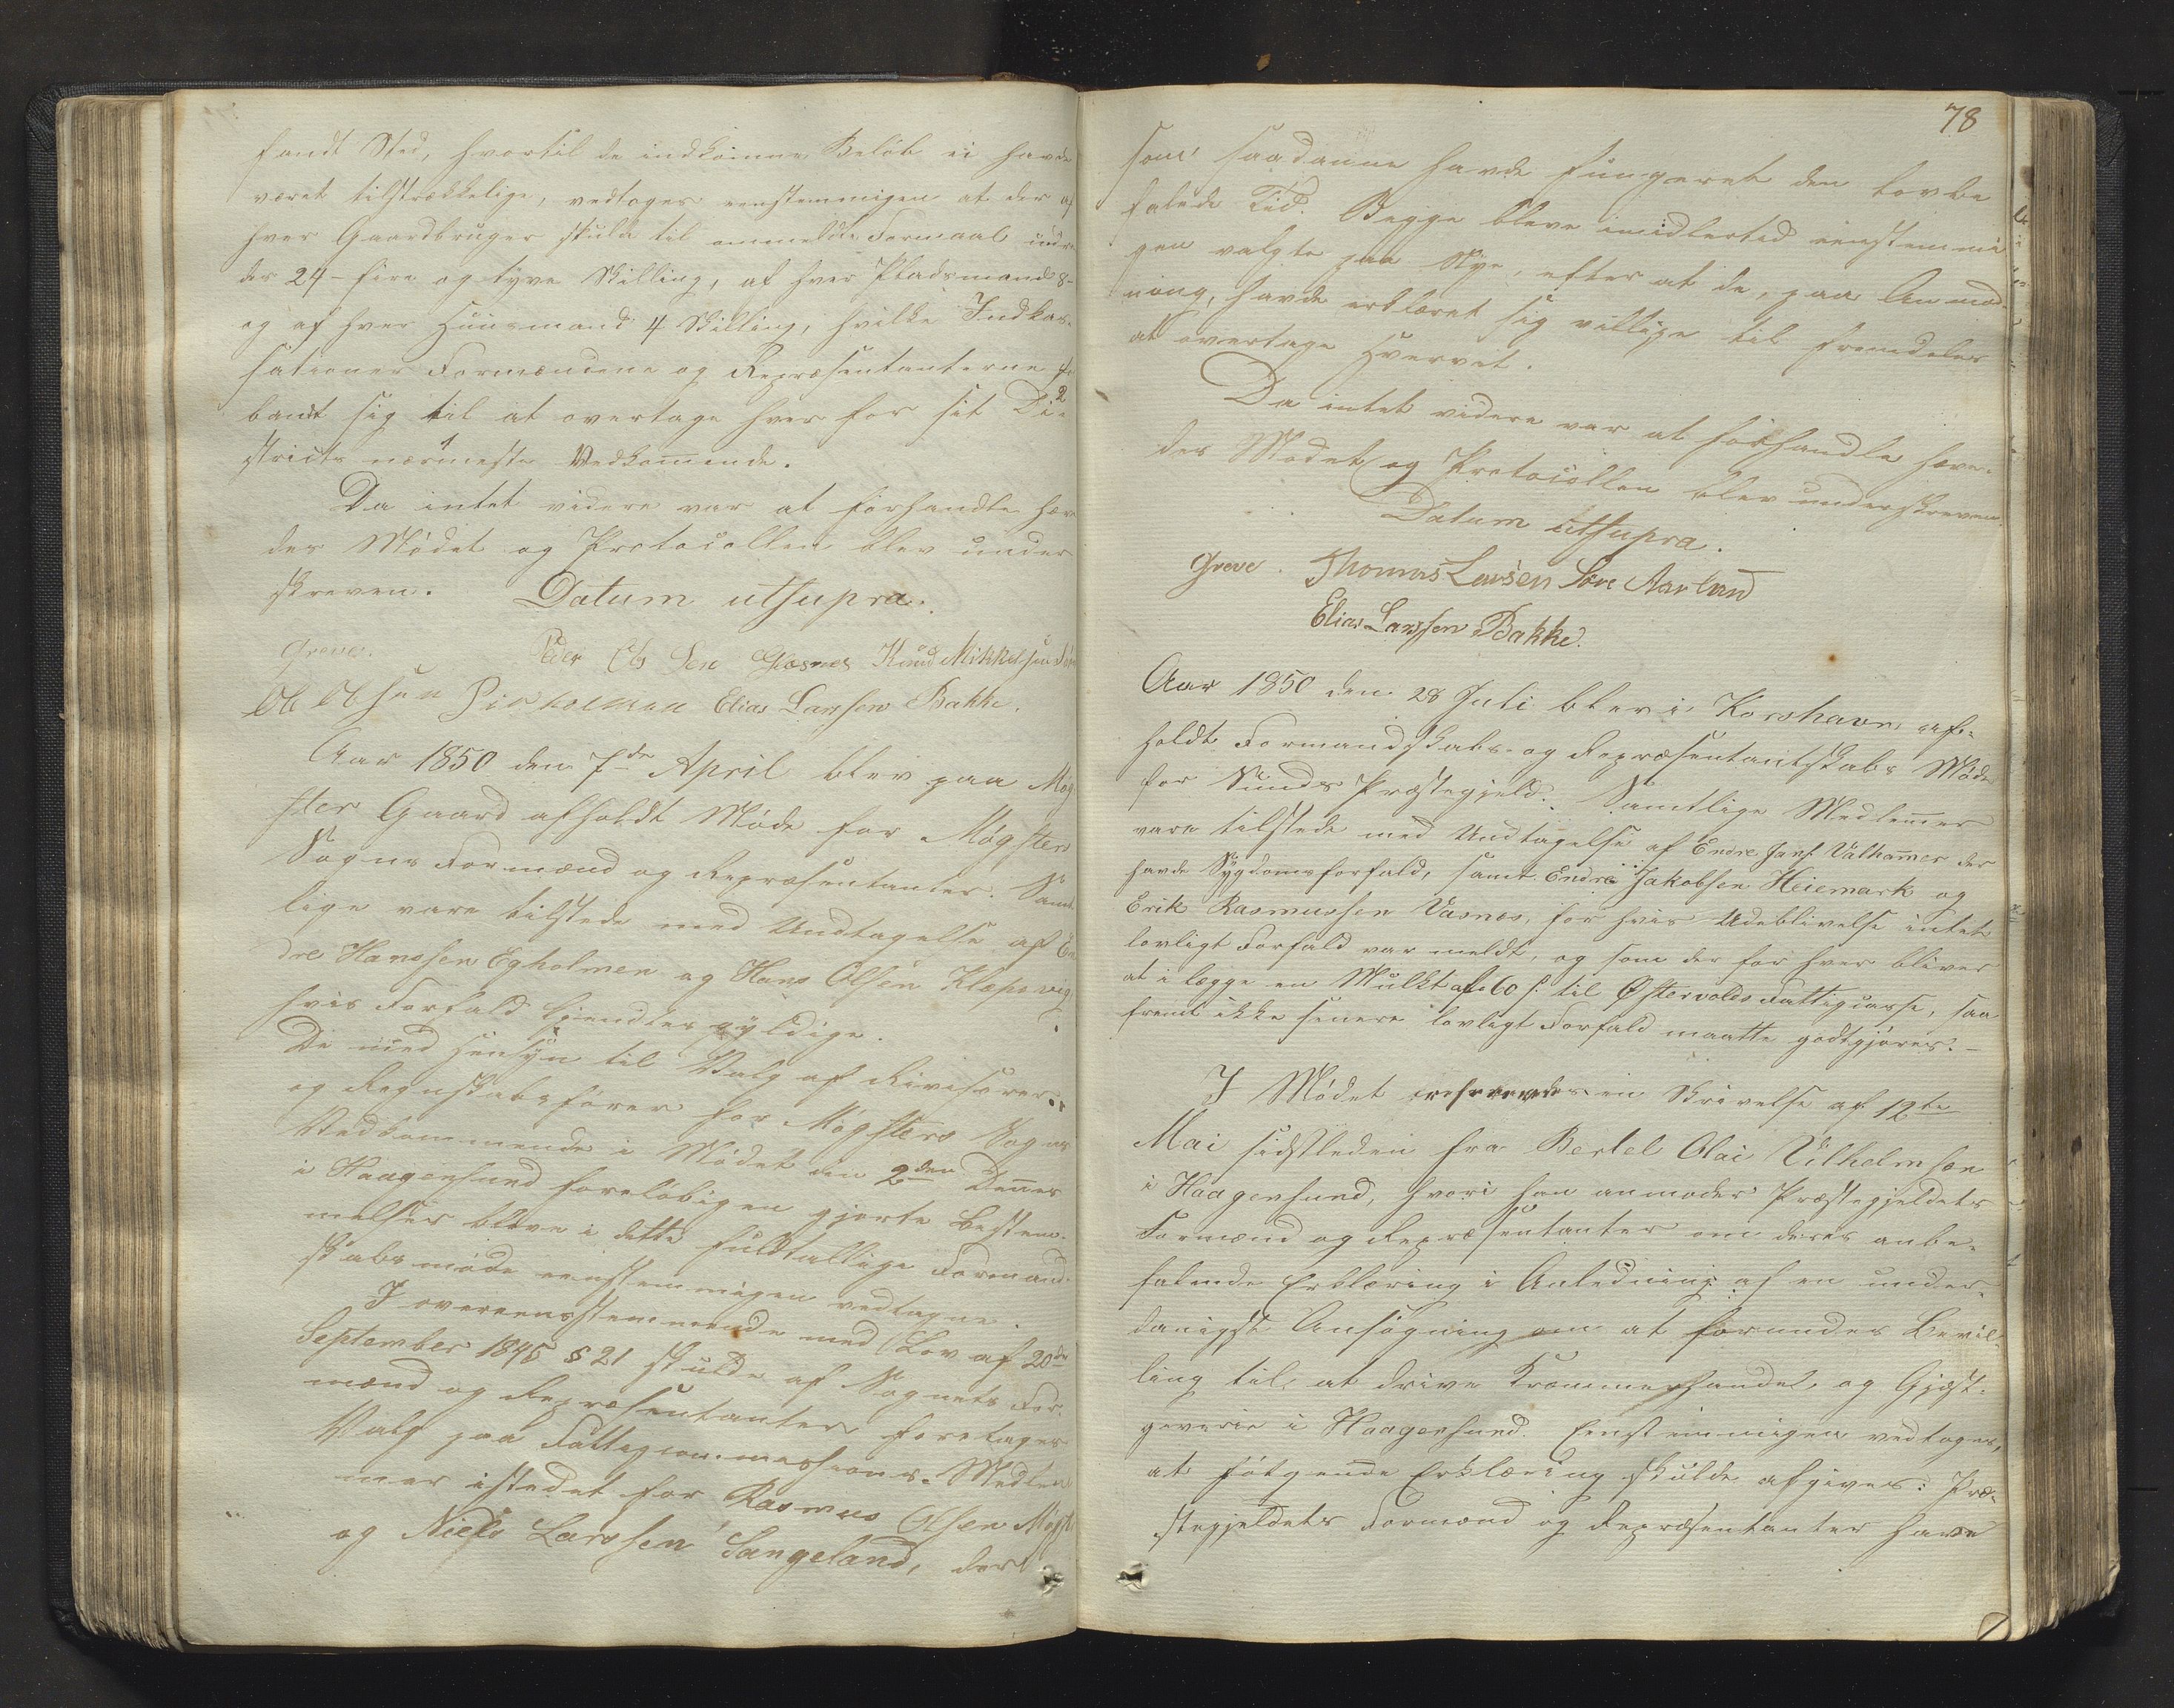 fandt Sted, hvortil de indkomne Beløb ei havde
været tilstrækkelige, vedtoges eenstemmigen at der af
hver Gaardbruger skulde til ommeldte Formaal
des 24 - fire og tyve Skilling, af hver Pladsmand 8 -
og af hver Huusmand 4 Skilling, hvilke Indkas-
sationer Formændene og Repræsentanterne
bandt sig til at overtage hver for sit Di-
stricts nærmeste Vedkommende.
Da intet videre var at forhandle hæve
des Mødet og Protocollen blev under
skreven. Datum utsupra.
Greve. Peder Ols Sen Glæsnes Knud Mikkelsen
Ole Olsen Elias Larssen Bakke.
Aar 1850 den 7de April blev paa Møg
ster Gaard afholdt Møde for Møgster
Sogns Formænd og Repræsentanter. Samt
lige vare tilstede med Undtagelse af En
dre Hanssen Egholmen og Hans Olsen Klæpsvig
hvis Forfald kjendtes gyldige.
De med Hensyn til Valg af Revisorer
og Regnskabsfører for Møgsters Sogns
Vedkommende i Mødet den 2den Dennes
i Haagensund foreløbigen gjorte Bestem-
melser bleve i dette fuldtallige Formand-
skabsmøde eenstemmigen vedtagne.
I overeensstemmende med Lov af 20de
September 1845 § 21 skulde af Sognets For-
mænd og Repræsentanter foretages
Valg paa Fattigcommissions-Medlem
mer istedet for Rasmus Olsen Møgst
og Niels Larssen Sangeland, der
78
som saadanne havde fungeret den lovbe
falede Tid. Begge bleve imidlertid eenstemmi
gen valgte paa Nye, efter at de, paa Anmod-
ning, havde erklæret sig villige til fremdeles
at overtage Hvervet.
Da intet videre var at forhandle hæve-
des Mødet og Protocollen blev underskreven.
Datum utsupra.
Greve. Thomas Larsen Søre Aarland
Elias Larssen Bakke.
Aar 1850 den 28 Juli blev i Korshavn af-
holdt Formandskabs- og Repræsentantskabs Møde
for Sunds Præstegjeld. Samtlige Medlemer
vare tilstede med Undtagelse af Endre Jans. Valhamer der
havde Sygdomsforfald, samt Endre Jakobsen Heiemark og
Erik Rasmussen Vasnes, for hvis Udeblivelse intet
lovligt Forfald var meldt, og som der for hver bliver
at i lægge en Mulkt af 60 s. til Østervolds Fattigcasse, saa
fremt ikke senere lovligt Forfald maatte godtgjøres. -
I Mødet en Skrivelse af 12te
Mai sidstleden fra Bertel Olai Vilhelmsen
i Haagensund, hvori han anmoder Præstegjeldets
Formænd og Repræsentanter om deres anbe-
falende Erklæring i Anledning af en under-
danigst Ansøgning om at forundes Bevil-
ling til at drive Kræmmerhandel og Gjæst-
geverie i Haagensund. Eenstemmigen vedtoges,
at følgende Erklæring skulde afgives: Præ-
stegjeldets Formænd og Repræsentanter have